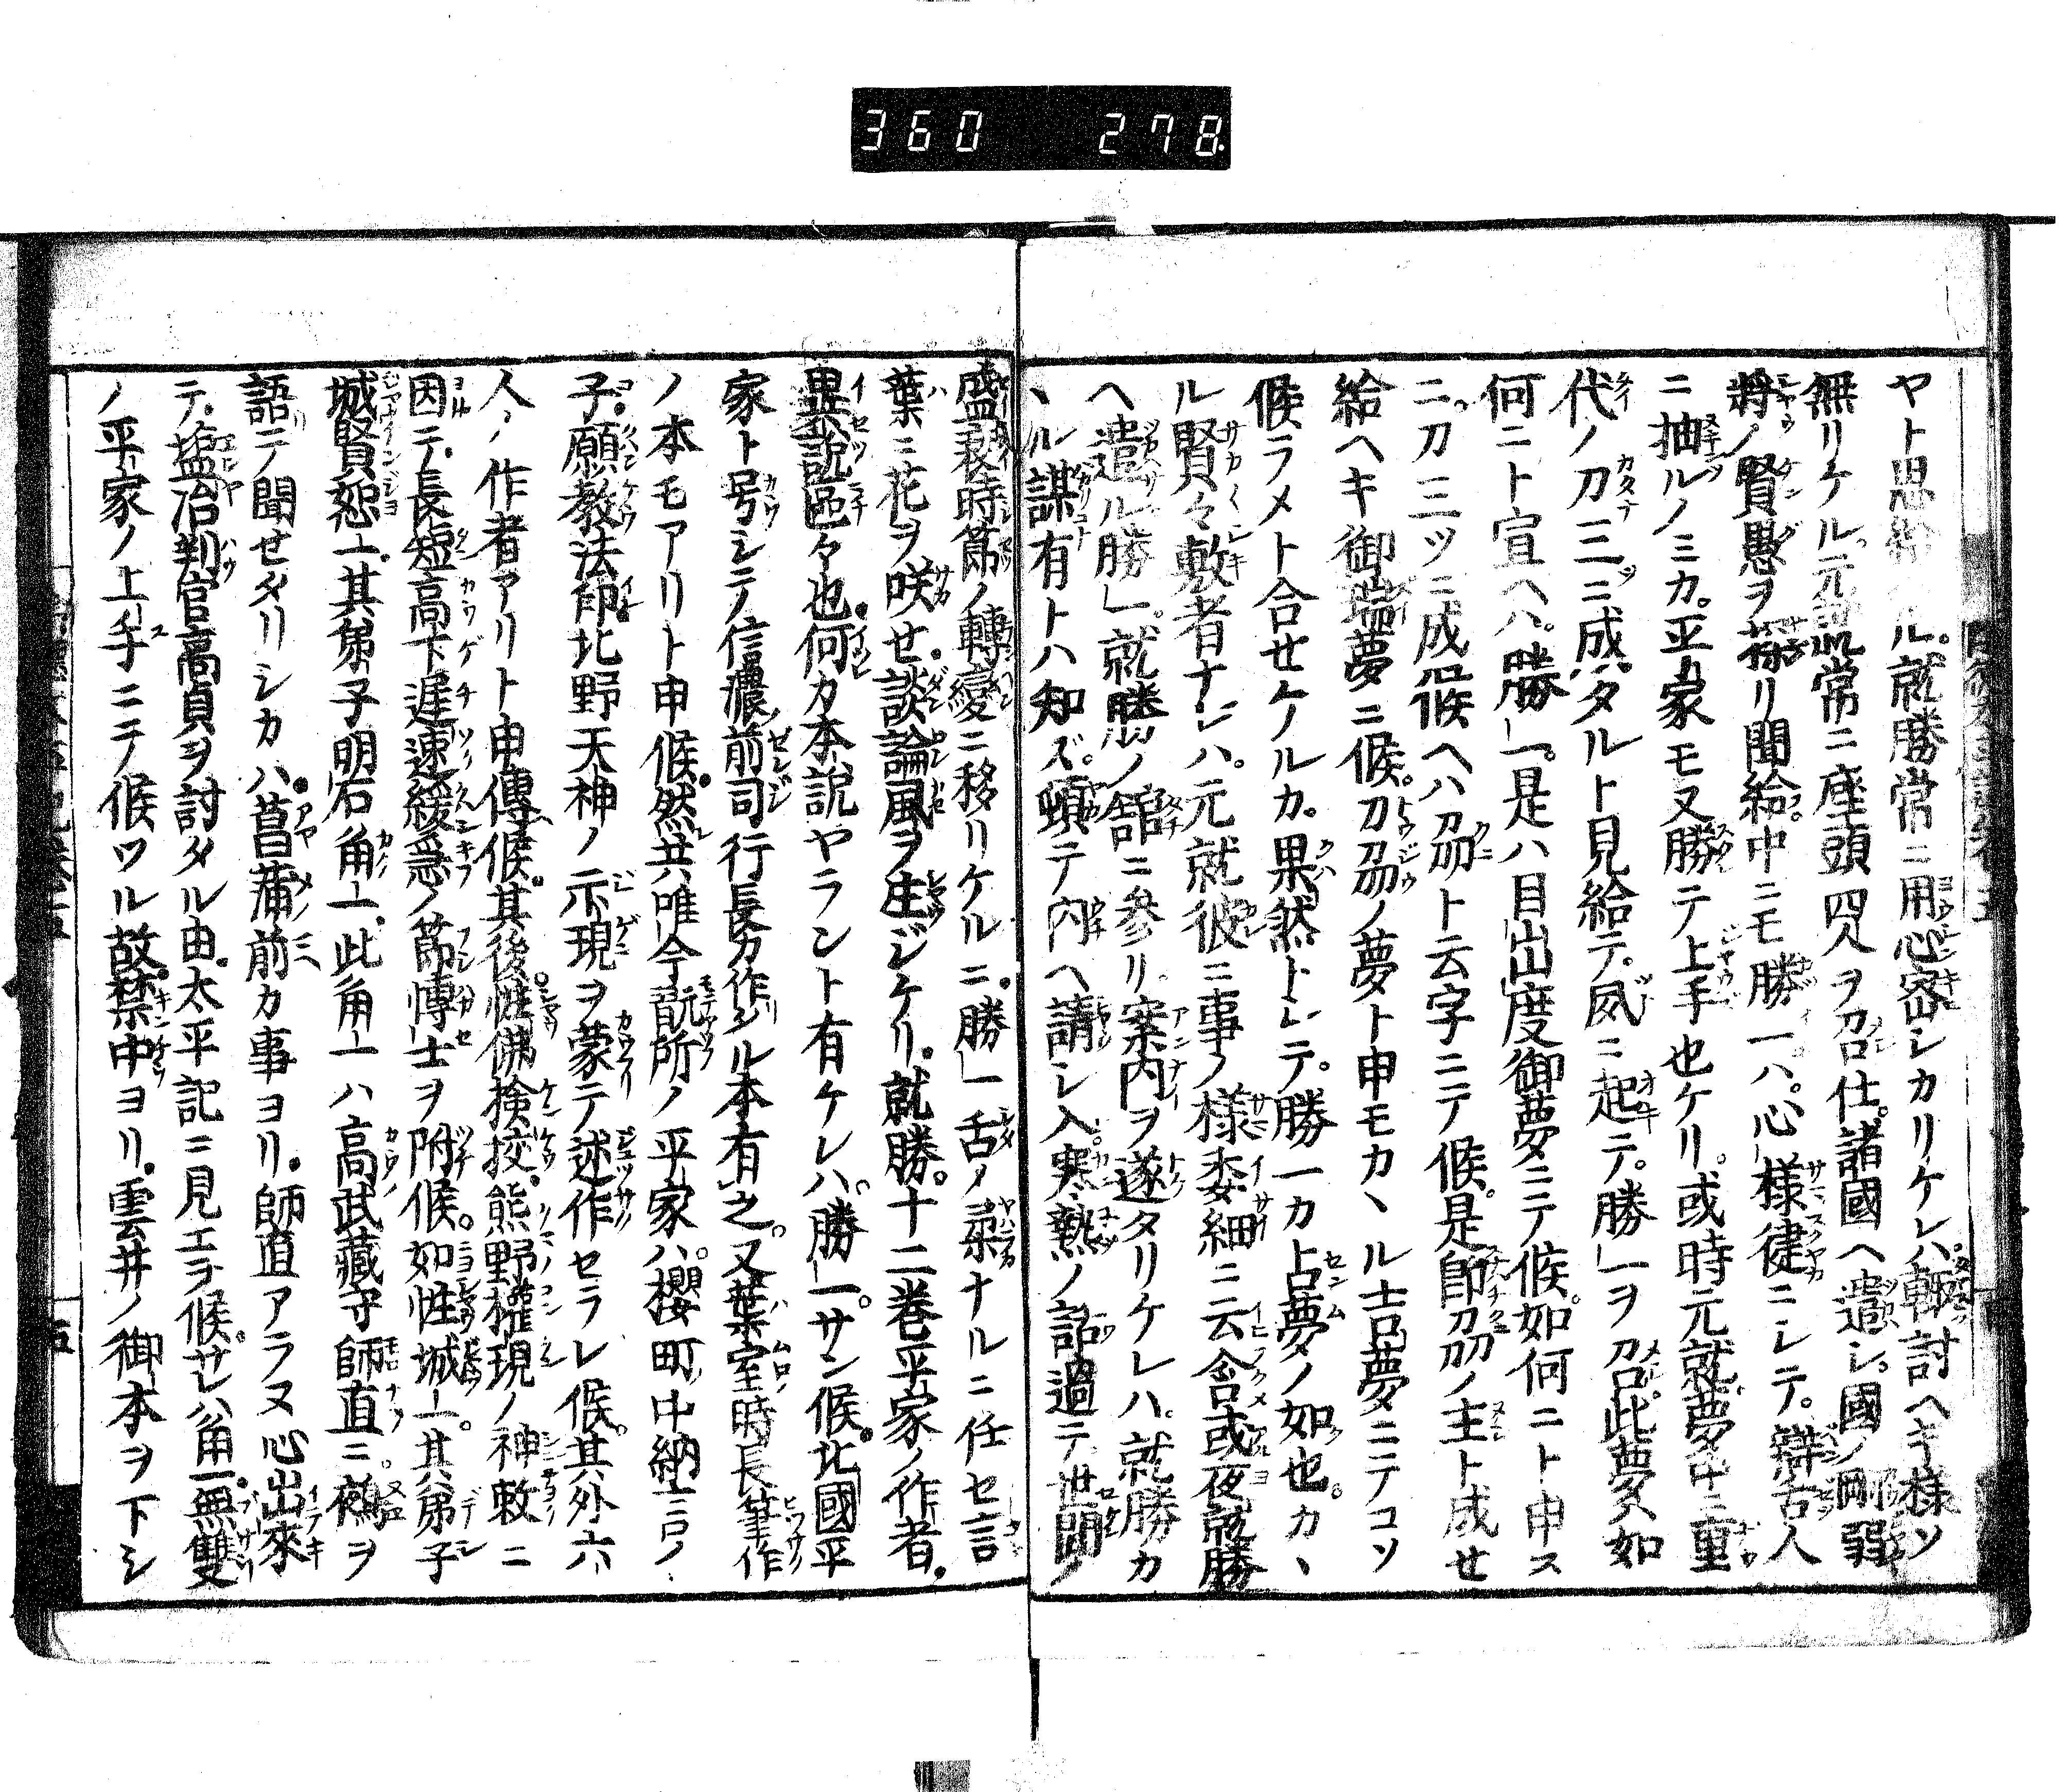 360 278
ヤト思給ル。就勝常ニ用心密シカリケレハ、輙討ヘキ様ソ
無リケル。元就常ニ座頭四人ヲ召仕。諸國ヘ遣シ。國ノ剛弱
將ノ賢愚ヲ探リ聞給。中ニモ勝一ハ。心様健ニシテ。辯舌人
ニ抽ルノミカ。平家モ又勝テ上手也ケリ。或時元就夢中ニ重
代ノ刀三ニ成タルト見給テ。夙ニ起テ。勝一ヲ召。此夢ハ如
何ニト宣ヘハ。勝一。是ハ目出度御夢ニテ候。如何ニト申ス
ニ。刀三ツニ成候ヘハ刕ト云字ニテ候。是即刕ノ主ト成せ
給ヘキ御瑞夢ニ候。刀刕ノ夢ト申モカヽル吉夢ニテコソ
候ラメト合せケルカ。果然トシテ。勝一カ占夢ノ如也。カヽ
ル賢々敷者ナレハ。元就彼ニ事ノ様委細ニ云含。或夜就勝
ヘ遣ル。勝一。就勝ノ舘ニ参リ案内ヲ遂タリケレハ。就勝カ
ヽル謀有トハ知ズ。頓テ内ヘ請シ入寒熱ノ話過テ世間ノ
盛衰時節ノ轉變ニ移リケルニ。勝一舌ノ柔ナルニ任セ言
葉ニ花ヲ咲せ。談論風ヲ生ジケリ。就勝。十二巻平家ノ作者。
異説區々也。何カ本説ヤラント有ケレハ。勝一。サン候。北國平
家ト号シテ信濃前司行長カ作ル本有之。又葉室時長筆作
ノ本モアリト申候。然共唯今翫所ノ平家ハ。櫻町ノ中納言ノ
子。願教法印。北野天神ノ示現ヲ蒙テ述作セラレ候。其外六
人ノ作者アリト申傳候。其後。性佛検挍。熊野權現ノ神敕ニ
因テ。長短高下遅速緩急ノ節博士ヲ附候。如性城一。其弟子
城賢恕一。其弟子明石角一。此角一ハ高武藏守師直ニ鵺ヲ
語テ聞せタリシカハ。菖蒲前カ事ヨリ。師直アラヌ心出來
テ。塩冶判官高貞ヲ討タル由。太平記ニ見エテ候。サレハ角一無雙
ノ平家ノ上手ニテ候ツル故。禁中ヨリ。雲井ノ御本ヲ下シ